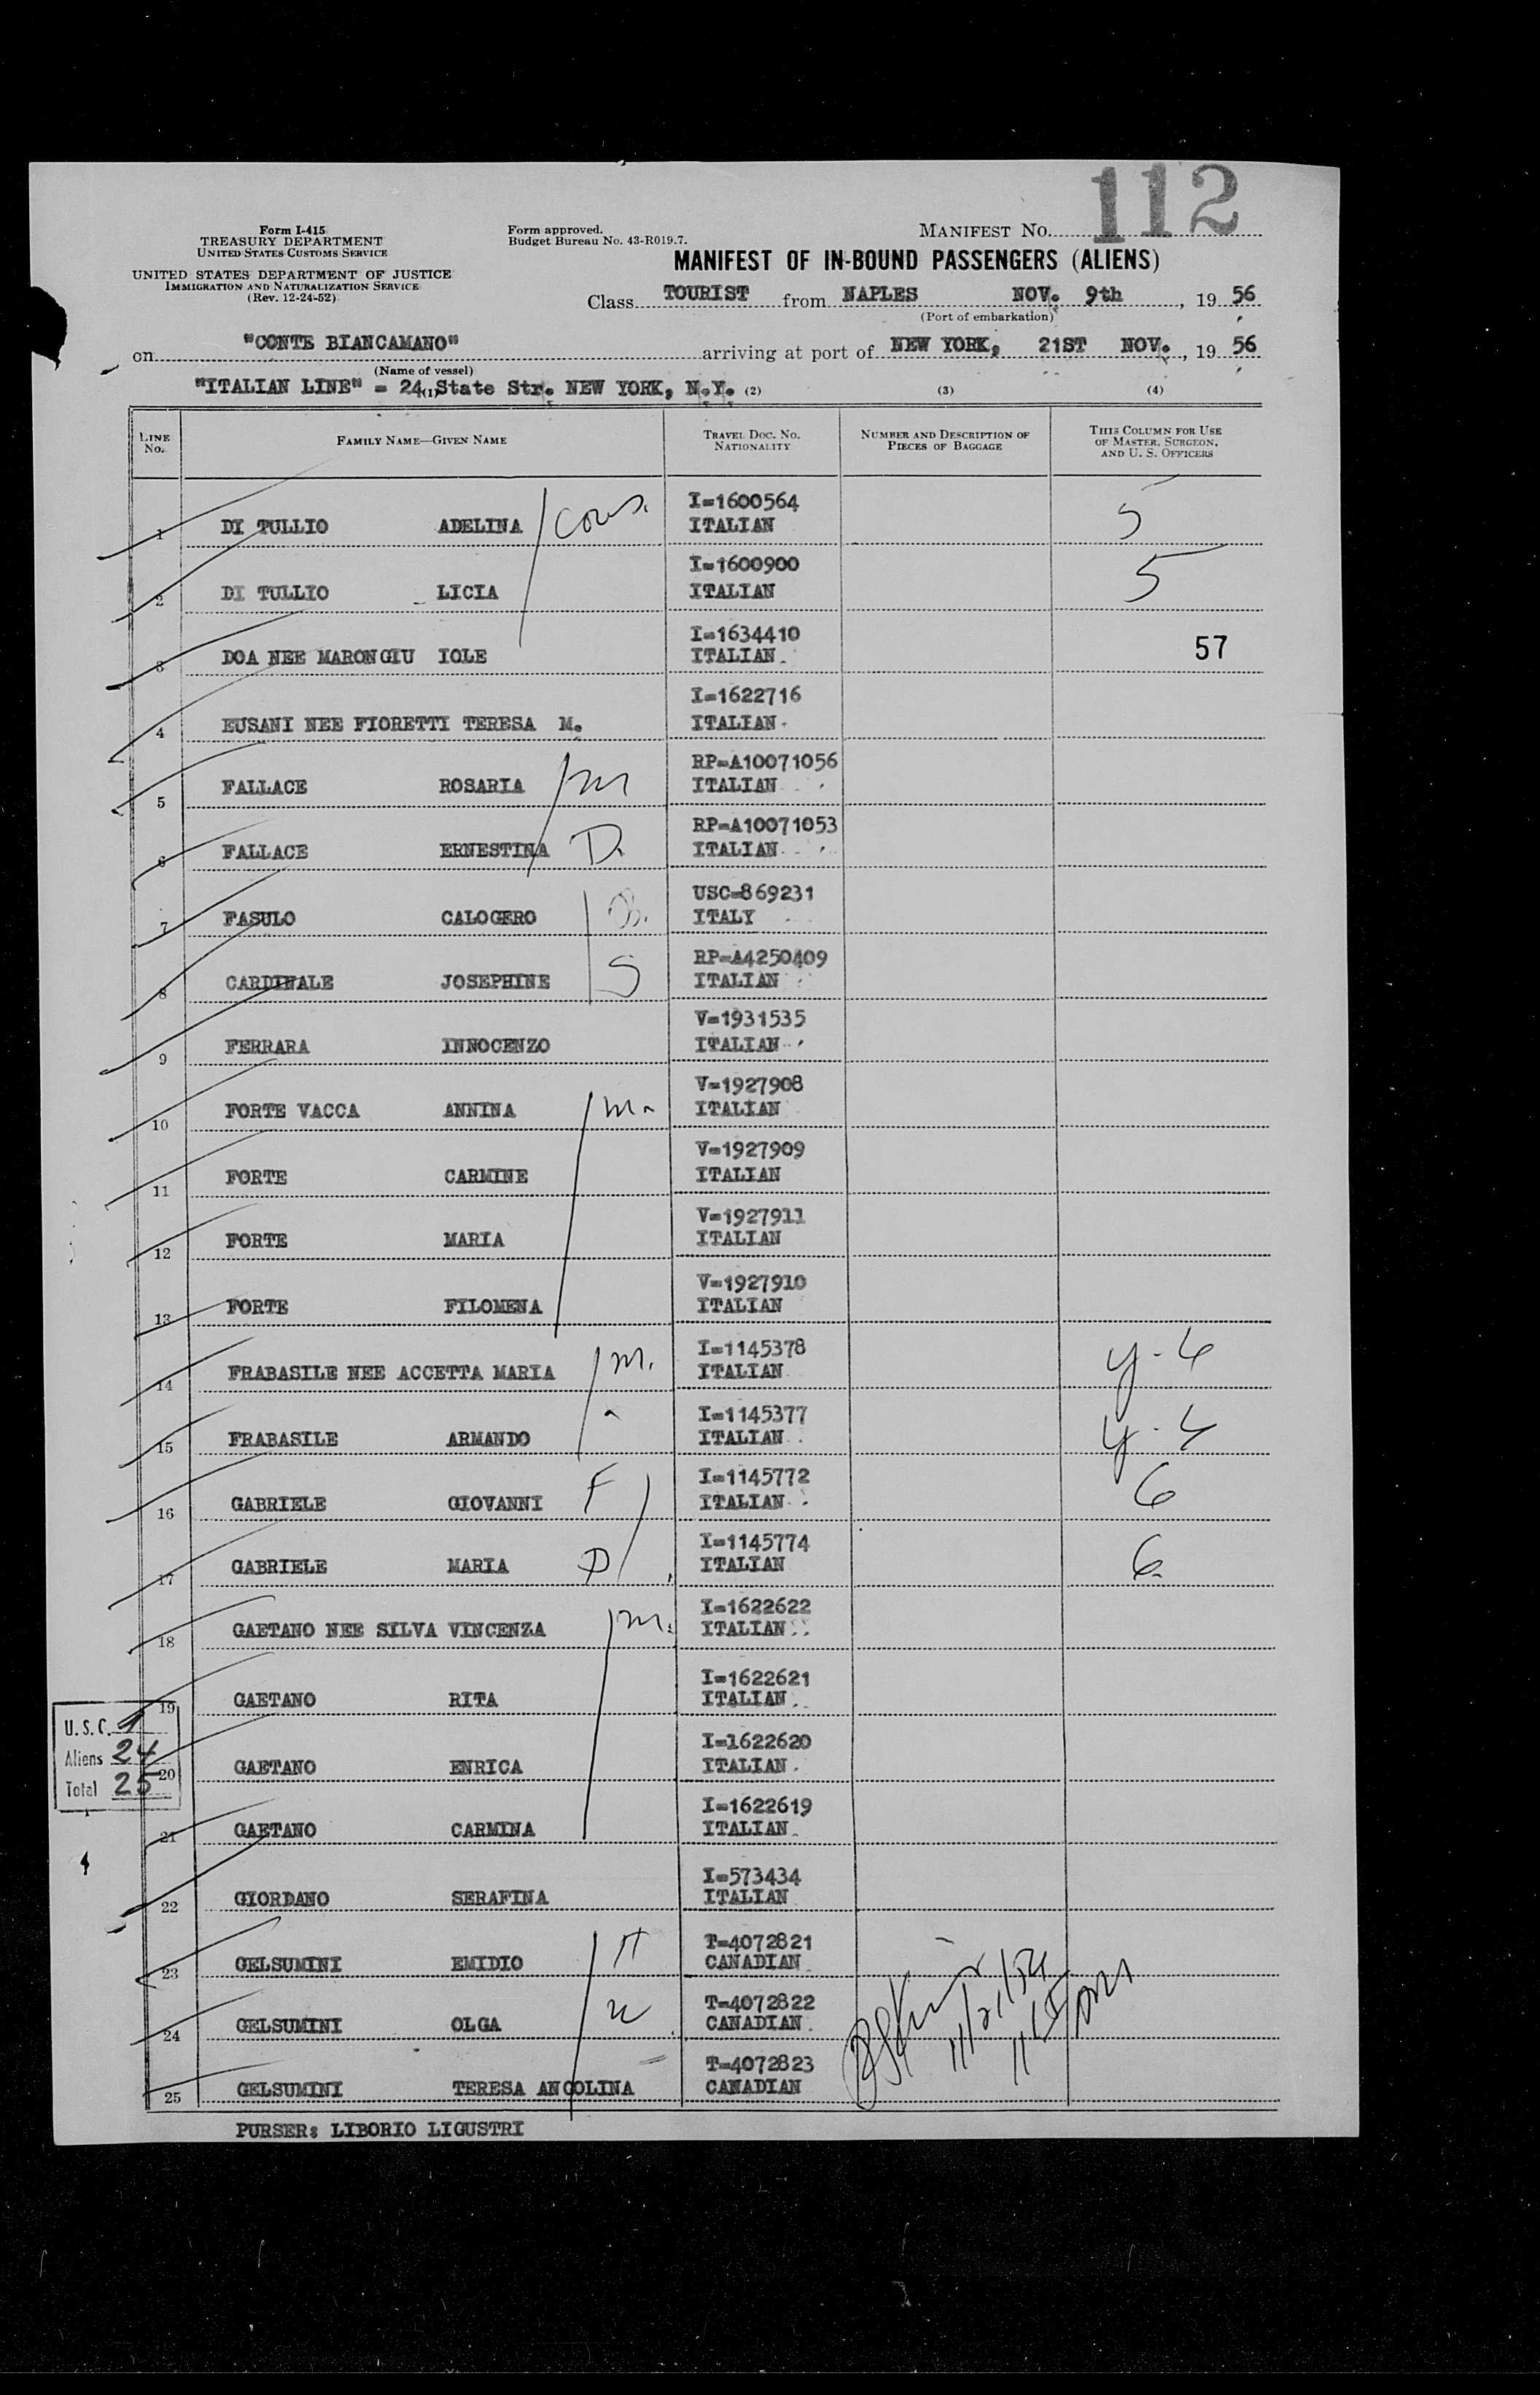 112
Form I-415
TREASURY DEPARTMENT
UNITED STATES CUSTOMS SERVICE
UNITED STATES DEPARTMENT OF JUSTICE
IMMIGRATION AND NATURALIZATION SERVICE
(Rev. 12-24-52)
Form approved.
Budget Bureau No. 43-R019.7.
MANIFEST No.
MANIFEST OF IN-BOUND PASSENGERS (ALIENS)
Class TOURIST from NAPLES NOV. 9th, 19 56
(Port of embarkation)
on "CONTE BIANCAMANO" arriving at port of NEW YORK, 21ST NOV., 19 56
(Name of vessel)
"ITALIAN LINE" = 24 State Str. NEW YORK, N.Y.
(1) (2) (3) (4)
LINE No. FAMILY NAME—GIVEN NAME TRAVEL DOC. No. NATIONALITY NUMBER AND DESCRIPTION OF PIECES OF BAGGAGE THIS COLUMN FOR USE OF MASTER, SURGEON, AND U. S. OFFICERS
I=1600564
1 DI TULLIO ADELINA cous. ITALIAN 5
I=1600900
2 DI TULLIO LICIA ITALIAN 5
I=1634410
3 DOA NEE MARONGIU IOLE ITALIAN 57
I=1622716
4 EUSANI NEE FIORETTI TERESA M. ITALIAN
RP=A10071056
5 FALLACE ROSARIA m ITALIAN
RP=A10071053
6 FALLACE ERNESTINA D. ITALIAN
USC=869231
7 FASULO CALOGERO B. ITALY
RP=A4250409
8 CARDINALE JOSEPHINE S ITALIAN
V=1931535
9 FERRARA INNOCENZO ITALIAN
V=1927908
10 FORTE VACCA ANNINA m. ITALIAN
V=1927909
11 FORTE CARMINE ITALIAN
V=1927911
12 FORTE MARIA ITALIAN
V=1927910
13 FORTE FILOMENA ITALIAN
I=1145378
14 FRABASILE NEE ACCETTA MARIA m. ITALIAN y-4
I=1145377
15 FRABASILE ARMANDO ITALIAN y-4
I=1145772
16 GABRIELE GIOVANNI F ITALIAN 6
I=1145774
17 GABRIELE MARIA D ITALIAN 6
I=1622622
18 GAETANO NEE SILVA VINCENZA m. ITALIAN
I=1622621
19 GAETANO RITA ITALIAN
I=1622620
20 GAETANO ENRICA ITALIAN
I=1622619
21 GAETANO CARMINA ITALIAN
I=573434
22 GIORDANO SERAFINA ITALIAN
T=4072821
23 GELSUMINI EMIDIO H CANADIAN
T=4072822
24 GELSUMINI OLGA W CANADIAN
T=4072823
25 GELSUMINI TERESA ANGOLINA CANADIAN
11/21/56
U.S.C. 1
Aliens 24
Total 25
PURSER: LIBORIO LIGUSTRI